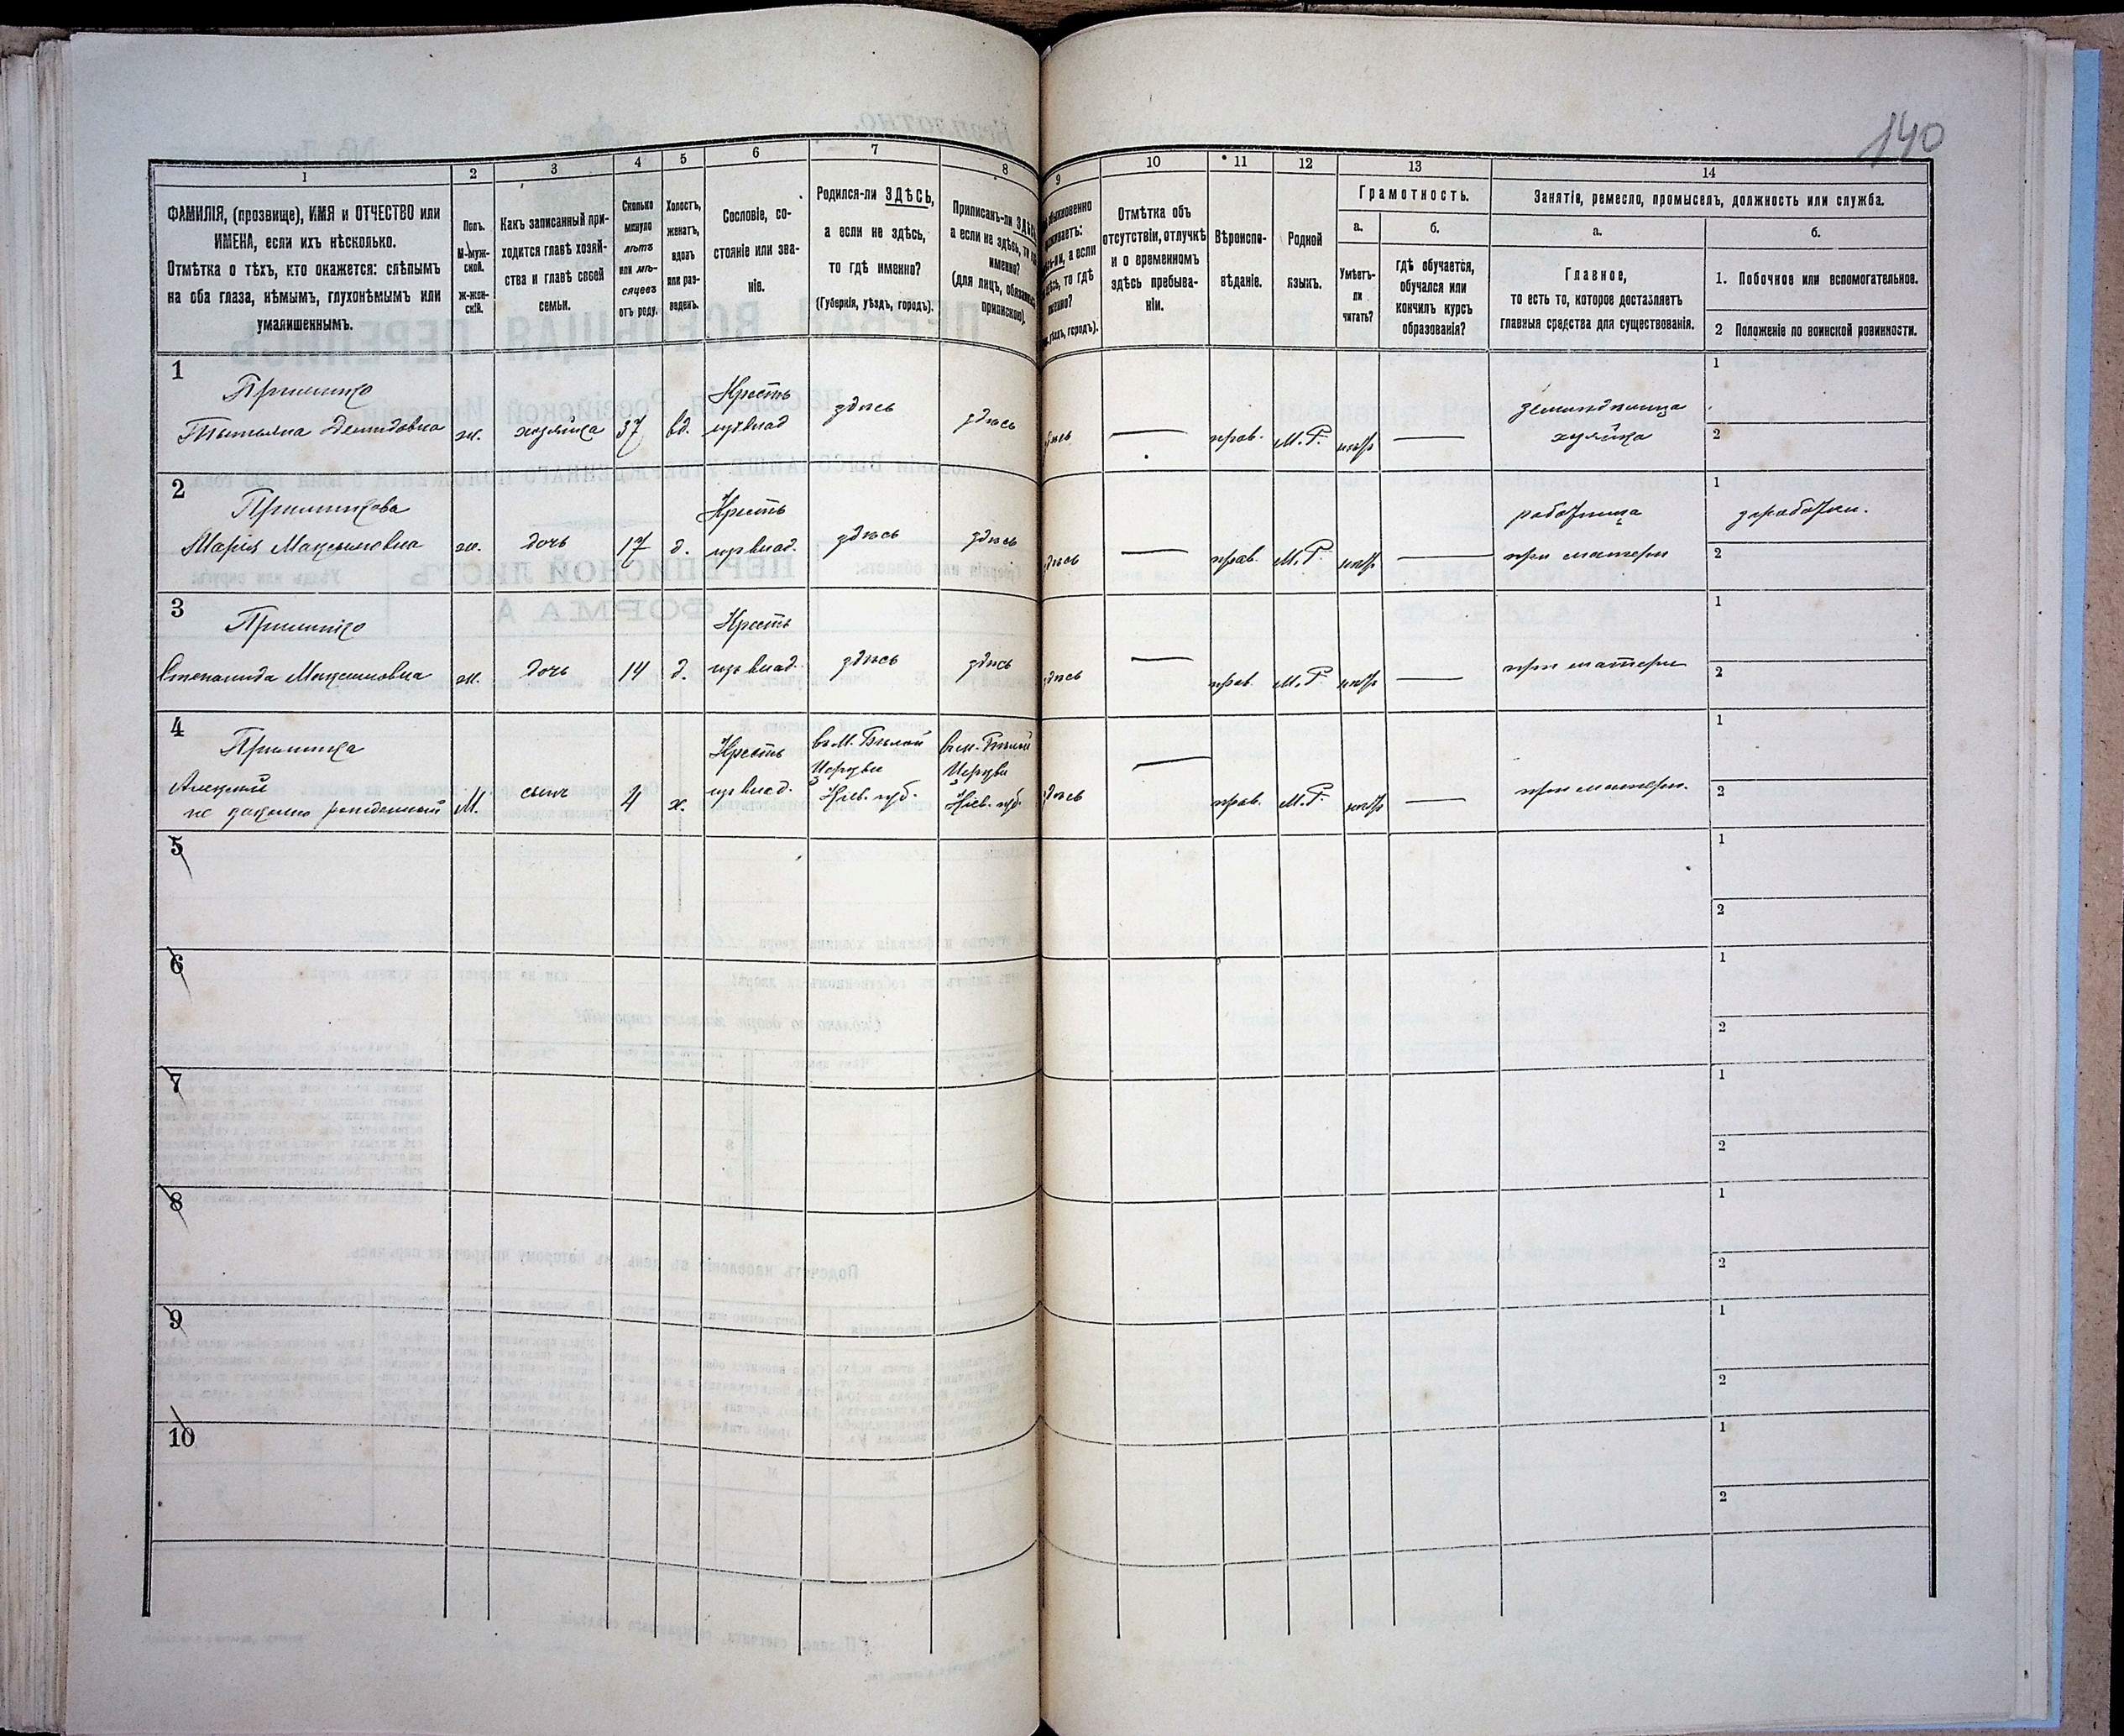 140
1
2
3
4
5
6
7
8
9
10
11
12
13
14
ФАМИЛІЯ, (прозвище), ИМЯ и ОТЧЕСТВО или
ИМЕНА, если ихъ нѣсколько.
Отмѣтка о тѣхъ, кто окажется: слѣпымъ
на оба глаза, нѣмымъ, глухонѣмымъ или
умалишеннымъ.
Полъ.
М-муж-
ской.
Ж-жен-
скій.
Какъ записанный при-
ходится главѣ хозяй-
ства и главѣ своей
семьи.
Сколько
минуло
лѣтъ
или мѣ-
сяцевъ
отъ роду.
Холостъ,
женатъ,
вдовъ
или раз-
веденъ.
Сословіе, со-
стояніе или зва-
ніе.
Родился-ли ЗДѢСЬ,
а если не здѣсь,
то гдѣ именно?
(Губернія, уѣздъ, городъ).
Приписанъ-ли
а если не здѣсь, то
именно?
(для лицъ,
припискою).
а если
то гдѣ
городъ).
Отмѣтка объ
отсутствіи, отлучкѣ
и о временномъ
здѣсь пребыва-
ніи.
Вѣроиспо-
вѣданіе.
Родной
языкъ.
Грамотность.
а.
Умѣетъ-
ли
читать?
б.
гдѣ обучается,
обучался или
кончилъ курсъ
образованія?
Занятіе, ремесло, промыселъ, должность или служба.
а.
Главное,
то есть то, которое доставляетъ
главныя средства для существованія.
б.
1. Побочное или вспомогательное.
2 Положеніе по воинской повинности.
1
Татьяна Демидовна
ж.
хозяйка
37
вд.
Крестъ
здѣсь
здѣсь
—
прав.
М.Р.
—
хозяйка
1
2
2
Марія Максимовна
ж.
дочь
17
д.
Крестъ
изъ влад.
здѣсь
здѣсь
—
прав.
М.Р.
—
работница
при матери
1
2
3
Степанида Максимовна
ж.
дочь
14
д.
Крестъ
изъ влад.
здѣсь
здѣсь
—
прав.
М.Р.
—
при матери
1
2
4
Алексѣй
не законно рожденный
М.
сынъ
4
х.
Крестъ
изъ влад.
въ М. Бѣлой
Церкви
Кіев. губ.
въ м. Бѣлой
Церкви
Кіев. губ.
—
прав.
М.Р.
—
при матери.
1
2
5
1
2
6
1
2
7
1
2
8
1
2
9
1
2
10
1
2